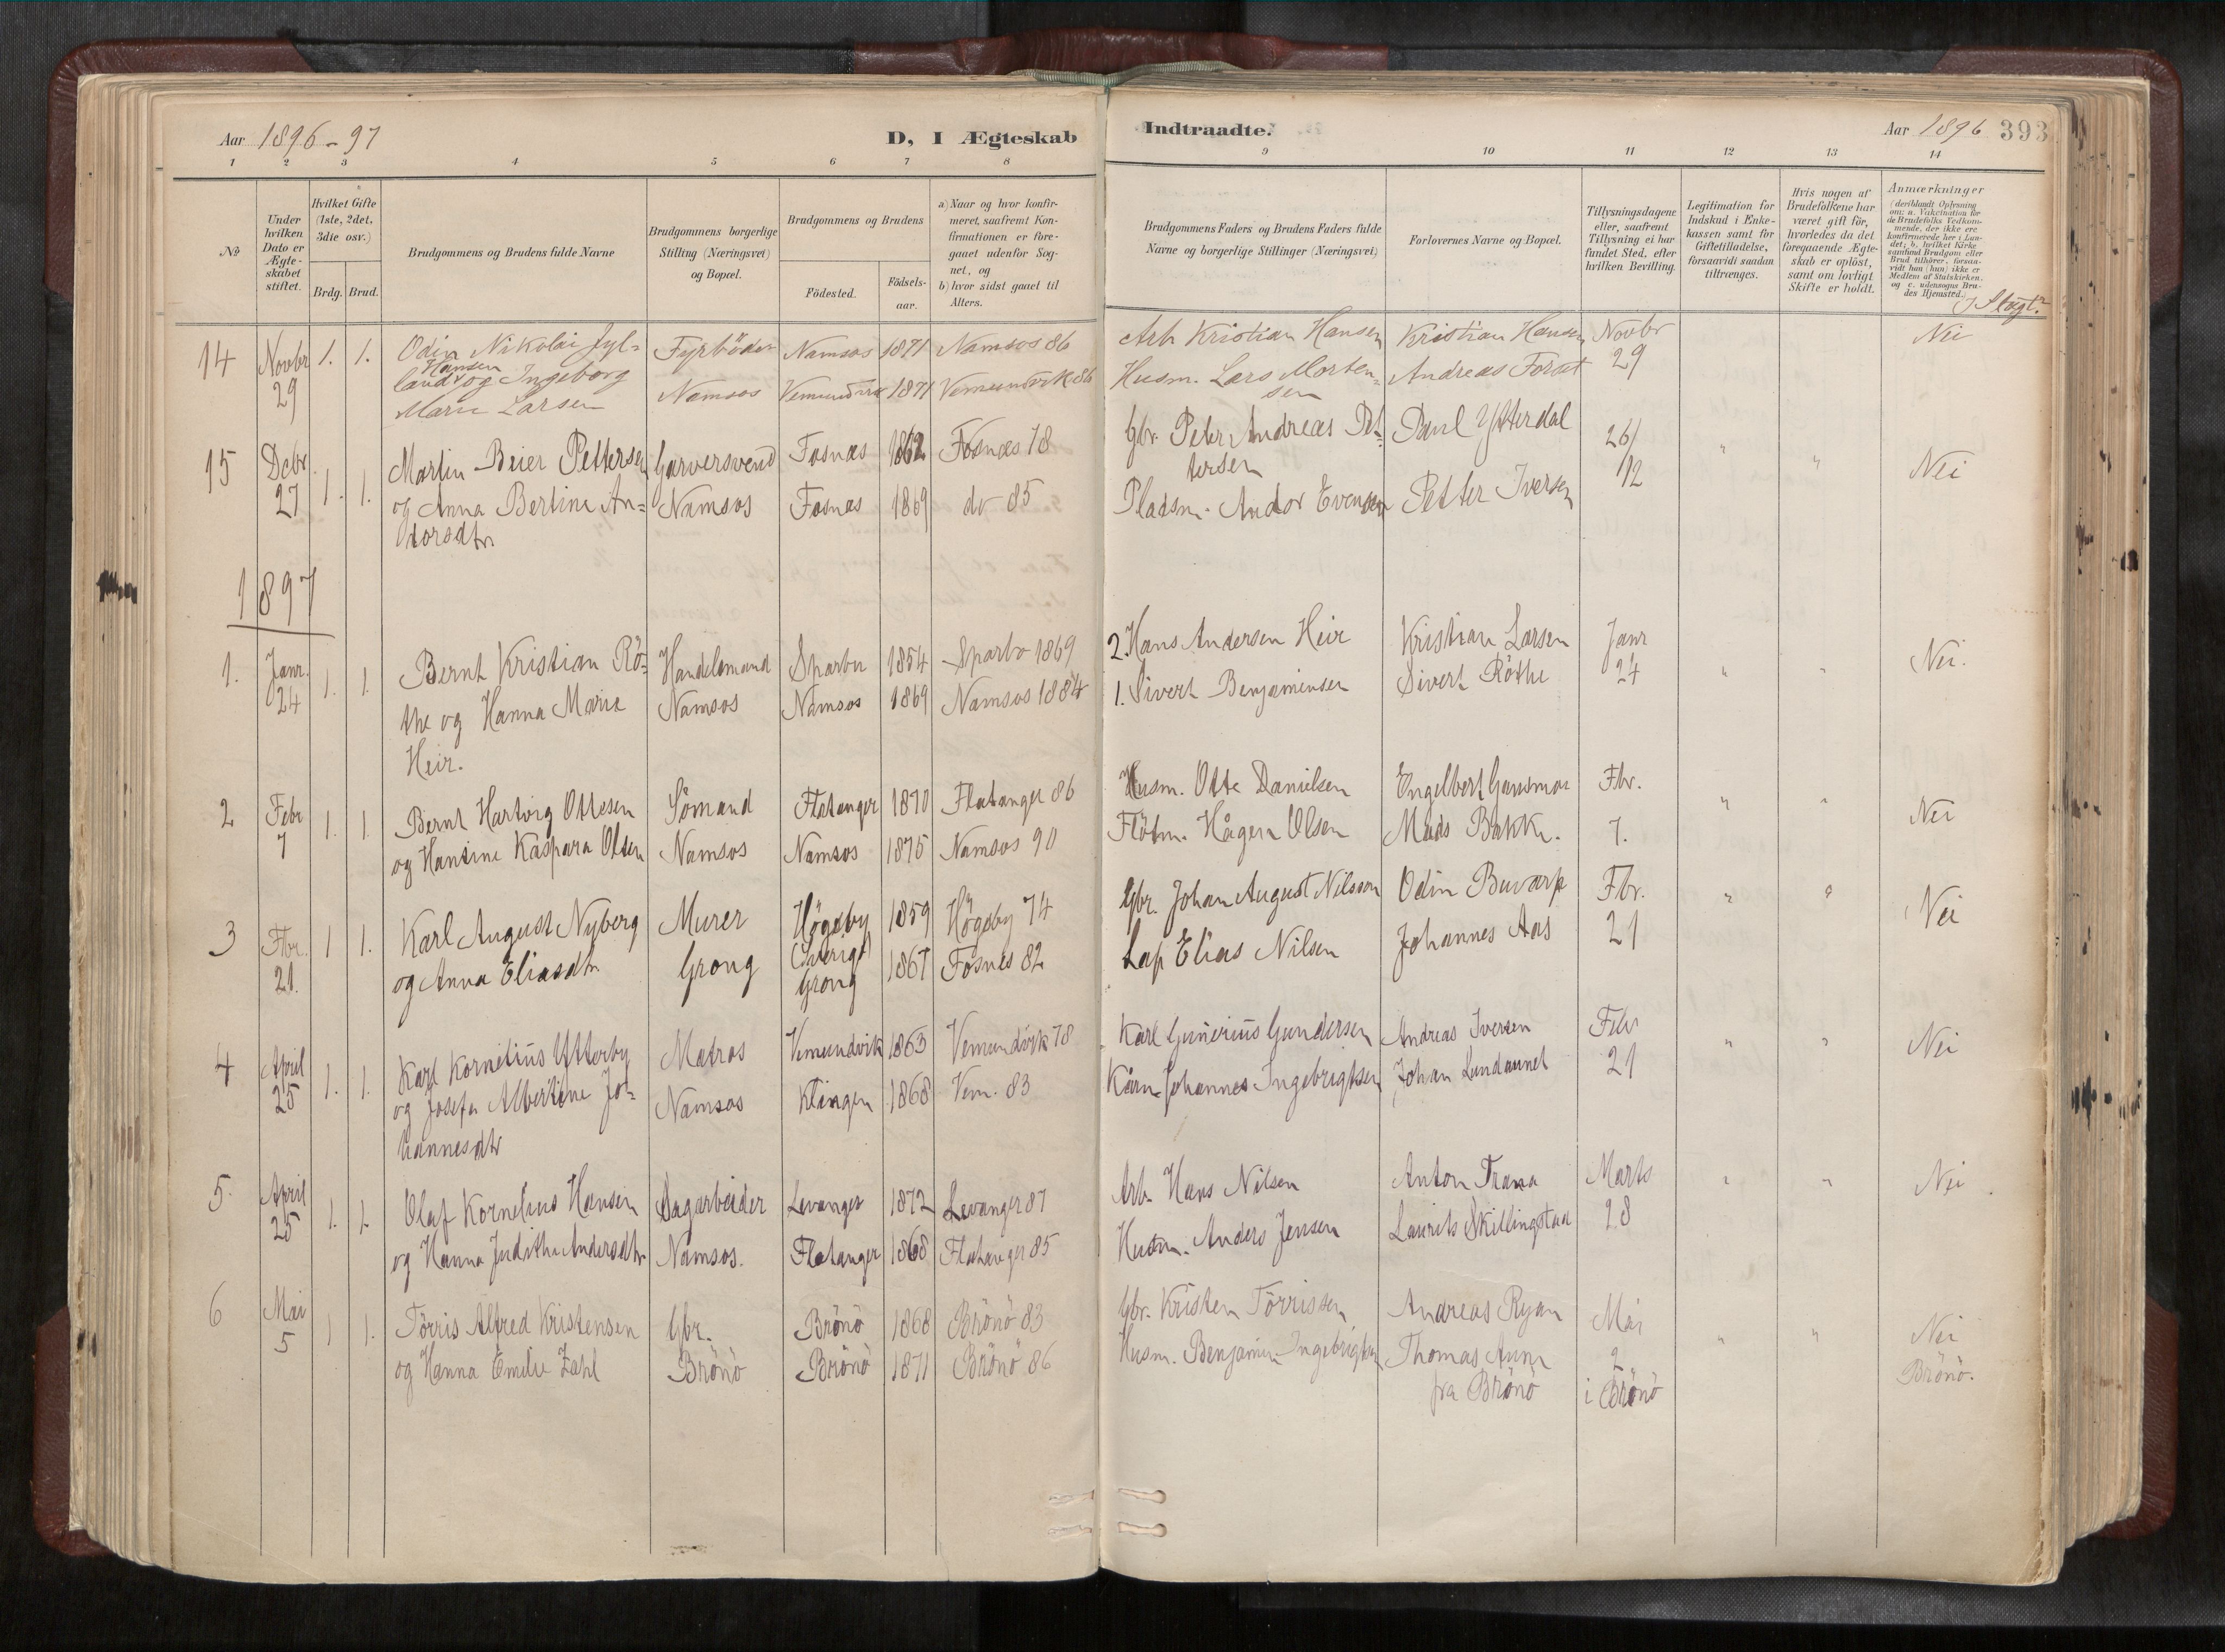 Aar 1896-97
D, I Ægteskab
Indtraadte.
Aar 1896 393
1 2 3 4 5 6 7 8 9 10 11 12 13 14
No
Under hvilken Dato er Ægteskabet stiftet.
Hvilket Gifte (1ste, 2det, 3die osv.)
Brdg. Brud.
Brudgommens og Brudens fulde Navne
Brudgommens borgerlige Stilling (Næringsvei) og Bopæl.
Brudgommens og Brudens
Födested.
Födsels-aar.
a) Naar og hvor konfirmeret, saafremt Konfirmationen er foregaaet udenfor Sognet, og
b) hvor sidst gaaet til Alters.
Brudgommens Faders og Brudens Faders fulde Navne og borgerlige Stillinger (Næringsvei)
Forlovernes Navne og Bopæl.
Tillysningsdagene eller, saafremt Tillysning ei har fundet Sted, efter hvilken Bevilling.
Legitimation for Indskud i Enkekassen samt for Giftetilladelse, forsaavidt saadan tiltrænges.
Hvis nogen af Brudefolkene har været gift för, hvorledes da det foregaaende Ægteskab er oplöst, samt om lovligt Skifte er holdt.
Anmærkninger
(deriblandt Oplysning om: a. Vakcination for de Brudefolks Vedkommende, der ikke ere konfirmerede her i Landet; b. hvilket Kirkesamfund Brudgom eller Brud tilhörer, forsaavidt han (hun) ikke er Medlem af Statskirken, og c. udensogns Brudes Hjemsted.)
I Slægt?
14 Novbr 1. 1. Odin Nikolai Jyl- Fyrböder Namsos 1871 Namsos 86 Arb Kristian Hansen Kristian Hansen Novbr Nei
29 Hansen
land og Ingeborg Namsos Vemundvik 1871 Vemundvik 86 Husm. Lars Morten- Andreas Forat 29
Marie Larsen sen
15 Debr. 1. 1. Martin Beier Pettersen Garversvend Fosnæs 1862 Fosnæs 78 Gbr. Peter Andreas Pet- Paul Ytterdal 26/ " " Nei
tersen
27 og Anna Bertine An- Namsos Fosnæs 1869 do 85 Pladsm. Andor Evensen Petter Iversen 12
dorsdtr
1897
1. Janr. 1. 1. Bernt Kristian Rö- Handelsmand Sparbu 1854 Sparbo 1869 2. Hans Andersen Heir Kristian Larsen Janr " " Nei.
24 the og Hanna Marie Namsos Namsos 1869 Namsos 1884 1. Sivert Benjaminsen Sivert Röthe 24
Heir.
2 Febr 1. 1. Bernt Hartvig Ottesen Sömand Flatanger 1870 Flatanger 86 Husm. Otte Danielsen Engelbert Gansmoe Fbr. " " Nei
7 og Hansine Kaspara Olsen Namsos Namsos 1875 Namsos 90 Flötm. Hågen Olsen Mads Bakke. 7.
3 Fbr. 1 1. Karl August Nyberg Murer Högsby 1859 Högsby 74 Gbr. Johan August Nilsson Odin Buvarp Fbr. " " Nei
(Sverige)
21. og Anna Eliasdtr Grong Grong 1867 Fosnes 82 Lap Elias Nilsen Johannes Aas 21
4 April 1. 1. Karl Kornelius Ytterby Matros Vemundvik 1863 Vemundvik 78 Karl Gunerius Gundersen Andreas Iversen Febr " " Nei
25 og Josefa Albertine Jo- Namsos Klingen 1868 Vem. 83 Johannes Ingebrigtsen Johan Lundaunet 21
hannesdtr
5. April 1. 1. Olaf Kornelius Hansen Sagarbeider Levanger 1872 Levanger 87 Arb. Hans Nilsen Anton Trana Marts " " Nei.
25 og Hanna Judithe Andersdtr Namsos. Flatanger 1868 Flatanger 85 Husm. Anders Jensen Laurits Skillingstad 28
6 Mai 1 1. Törris Alfred Kristensen Gbr. Brönö 1868 Brönö 83 Gbr. Kristen Törrissen Andreas Ryan Mai " " Nei
5 og Hanna Emelie Zahl Brönö Brönö 1871 Brönö 86 Husm. Benjamin Ingebrigtsen Thomas Aune 2 Brönö.
fra Brönö i Brönö